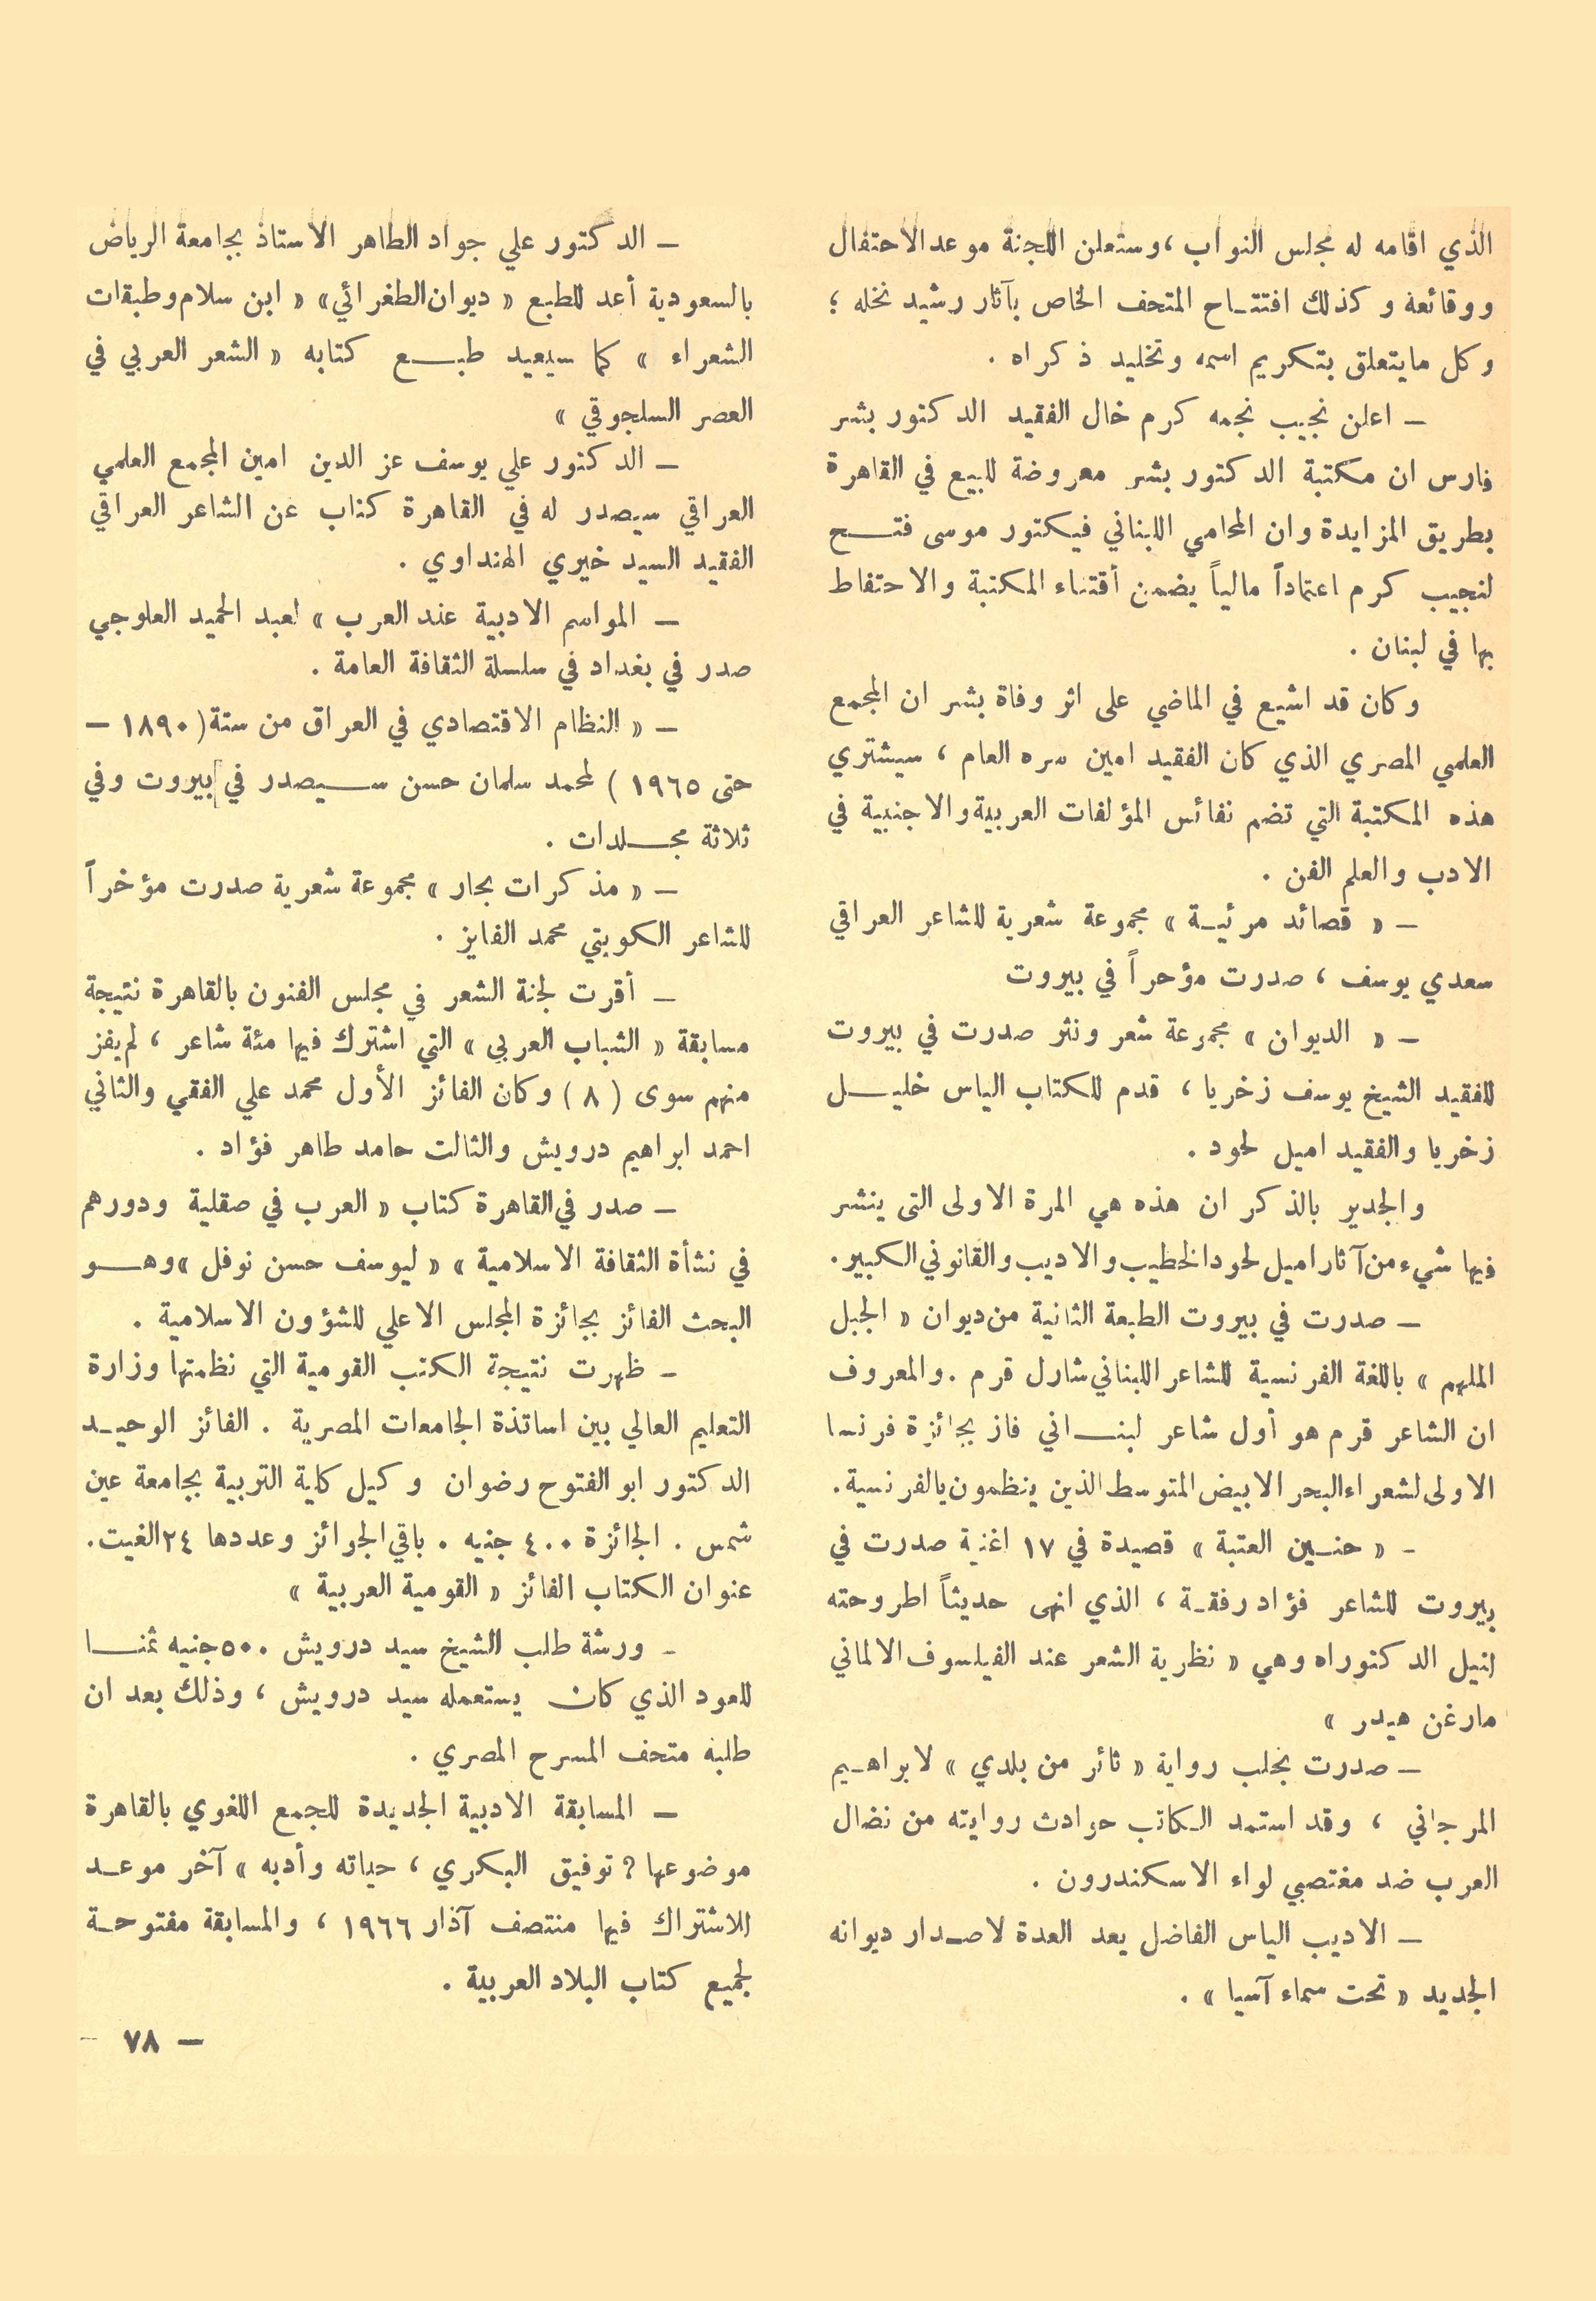 الذي اقامه له مجلس النواب ، وستعلن اللجنة موعد الاحتفال
ووقائعه وكذلك افتتـاح المتحف الخاص بآثار رشيد نخله ؛
وكل مايتعلق بتكريم اسمه وتخليد ذكراه .
ـ اعلن نجيب نجمه كرم خال الفقيد الدكتور بشر
فارس ان مكتبة الدكتور بشر معروضة للبيع في القاهرة
بطريق المزايدة وان المحامي اللبناني فيكتور موسى فتـــح
لنجيب كرم اعتماداً مالياً يضمن أقتناء المكتبة والاحتفاط
بها في لبنان .
وكان قد اشيع في الماضي على اثر وفاة بشر ان المجمع
العلمي المصري الذي كان الفقيد امين سره العام ، سيشتري
هذه المكتبة التي تضم نفائس المؤلفات العربية والاجنبية في
الادب والعلم الفن .
ـ « قصائد مرئيـة » مجموعة شعرية للشاعر العراقي
سعدي يوسف ، صدرت مؤحراً في بيروت
ـ « الديوان » مجموعة شعر ونثر صدرت في بيروت
للفقيد الشيخ يوسف زخريا ، قدم للكتاب الياس خليـــل
زخريا والفقيد اميل لحود .
والجدير بالذكر ان هذه هي المرة الاولى التى ينشر
فيها شيء من آثار اميل لحود الخطيب والاديب والقانوني الكبير .
ـ صدرت في بيروت الطبعة الثانية من ديوان « الجبل
الملهم » باللغة الفرنسية للشاعر اللبناني شارل قرم . والمعروف
ان الشاعر قرم هو أول شاعر لبنــاني فاز بجائزة فرنسا
الاولى لشعراء البحر الابيض المتوسط الذين ينظمون يالفرنسية .
ـ « حنـين العتبة » قصيدة في ١٧ اغنية صدرت في
بيروت للشاعر فؤاد رفقـة ، الذي انهى حديثاً اطروحته
لنيل الدكتوراه وهي « نظرية الشعر عند الفيلسوف الالماني
مارغن هيدر »
ـ صدرت بحلب رواية « ثائر من بلدي » لابراهـيم
المرجاني ، وقد استمد الـكاتب حوادث روايته من نضال
العرب ضد مغتصبي لواء الاسكندرون .
ـ الاديب الياس الفاضل يعد العدة لاصـدار ديوانه
الجديد « تحت سماء آسيا » .
ـ الدكتور علي جواد الطاهر الاستاذ بجامعة الرياض
بالسعودية أعد للطبع « ديوان الطغرائي» « ابن سلام وطبقات
الشعراء » كما سيعيد طبـــع كتابه « الشعر العربي في
العصر السلجوقي »
ـ الدكتور علي يوسف عز الدين امين المجمع العلمي
العراقي سيصدر له في القاهرة كتاب عن الشاعر العراقي
الفقيد السيد خيري الهنداوي .
ـ المواسم الادبية عند العرب » لعبد الحميد العلوجي
صدر في بغداد في سلسلة الثقافة العامة .
ـ « النظام الاقتصادي في العراق من ستة ( ١٨٩٠ –
حتى ١٩٦٥ ) لمحمد سلمان حسن ســيصدر في بيروت وفي
ثلاثة مجــلدات .
ـ « مذكرات بحار » مجموعة شعرية صدرت مؤخراً
للشاعر الكويتي محمد الفايز .
ـ أقرت لجنة الشعر في مجلس الفنون بالقاهرة نتيجة
مسابقة « الشباب العربي » التي اشترك فيها مئة شاعر ، لم يفز
منهم سوى ( ٨ ) وكان الفائز الأول محمد علي الفقي والثاني
احمد ابراهيم درويش والثالت حامد طاهر فؤاد .
ـ صدر في القاهرة كتاب « العرب في صقلية ودورهم
في نشأة الثقافة الاسلامية » « ليوسف حسن نوفل » وهـــو
البحث الفائز بجائزة المجلس الاعلي للشؤون الاسلامية .
ـ ظهرت نتيجة الكتب القومية التي نظمتها وزارة
التعليم العالي بين اساتذة الجامعات المصرية . الفائز الوحيـد
الدكتور ابو الفتوح رضوان وكيل كلية التربية بجامعة عين
شمس . الجائزة ٤٠٠ جنيه . باقي الجوائز وعددها ٢٤ الغيت .
عنوان الكتاب الفائز « القومية العربية »
ـ ورثة طلب الشيخ سيد درويش ٥٠٠ جنيه ثمنــا
للعود الذي كان يستعمله سيد درويش ، وذلك بعد ان
طلبه متحف المسرح المصري .
ـ المسابقة الادبية الجديدة للجمع اللغوي بالقاهرة
موضوعها ؟ توفيق البكري ، حياته وأدبه » آخر موعـد
للاشتراك فيها منتصف آذار ١٩٦٦ ، والمسابقة مفتوحـة
لجميع كتاب البلاد العربية .
– ٧٨ –